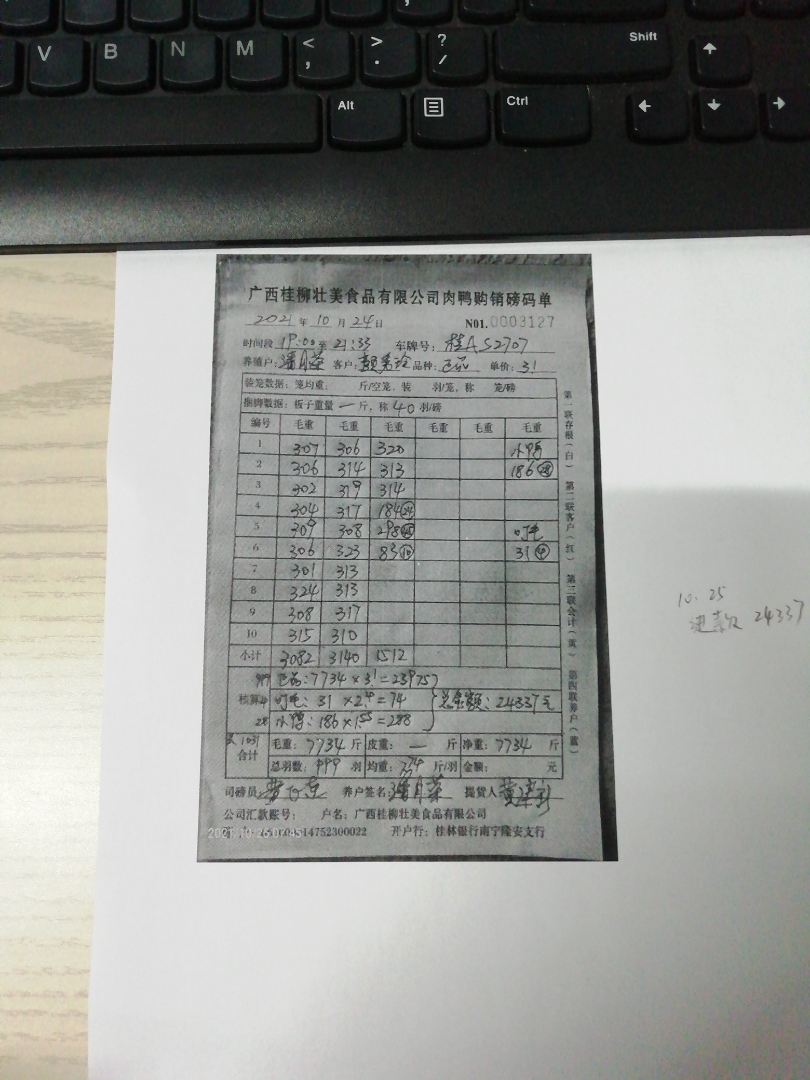 V B N M < , > . ? / Shift ↑
Alt Ctrl ← ↓ →
广西桂柳壮美食品有限公司肉鸭购销磅码单
2021 年 10 月 24 日 NO1.0003127
时间段 19:00 至 21:33 车牌号: 桂AS2707
养殖户: 潘月荣 客户: 品种: 正品 单价: 3.1
装笼数据: 笼均重: 斤/空笼, 装 羽/笼, 称 笼/磅
捆脚数据: 板子重量 一 斤, 称 40 羽/磅
编号 毛重 毛重 毛重 毛重 毛重 毛重
1 307 306 320 小鸭
2 306 314 313 186 28
3 302 319 314
4 304 317 184
5 309 308 298 叮毛
6 306 323 83 10 31 4
7 301 313
8 324 313
9 308 317
10 315 310
小计 3082 3140 1512
正品: 7734 × 3.1 = 23975
核算 叮毛: 31 × 2.4 = 74 总金额: 24337元
28 小鸭: 186 × 1.55 = 288
合计 毛重: 7734 斤 皮重: 一 斤 净重: 7734 斤
总羽数: 999 羽 均重: 7.74 斤/羽 金额: 元
司磅员 养户签名: 潘月荣 提货人
公司汇款账号: 户名: 广西桂柳壮美食品有限公司
14752300022 开户行: 桂林银行南宁隆安支行
第一联存根(白) 第二联客户(红) 第三联会计(黄) 第四联养户(蓝)
10.25
进款 24337